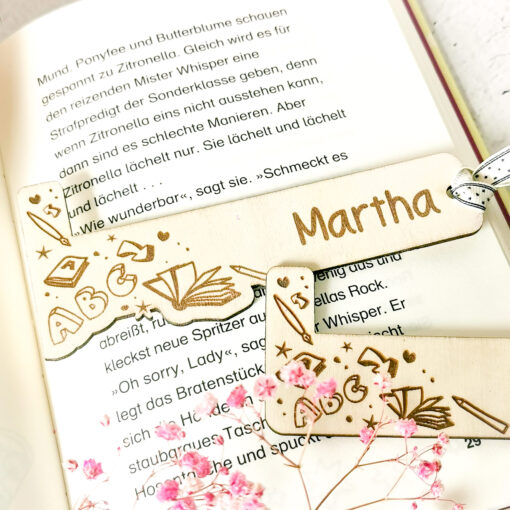 Mund. Ponyfee und Butterblume schauen
gespannt zu Zitronella. Gleich wird es für
den reizenden Mister Whisper eine
Strafpredigt der Sonderklasse geben, denn
wenn Zitronella eins nicht ausstehen kann,
dann sind es schlechte Manieren. Aber
Zitronella lächelt nur. Sie lächelt und lächelt
und lächelt . . .
»Schmeckt es
»Wie wunderbar«, sagt sie.
Martha
ABC
enig aus und
ellas Rock.
abreißt, fu
kleckst neue Spritzer au
Whisper. Er
»Oh sorry, Lady«, sag
ischt
legt das Bratenstück
ABC
sich die Hände
staubgraues Tasch
Hosentasche und spuckt
29